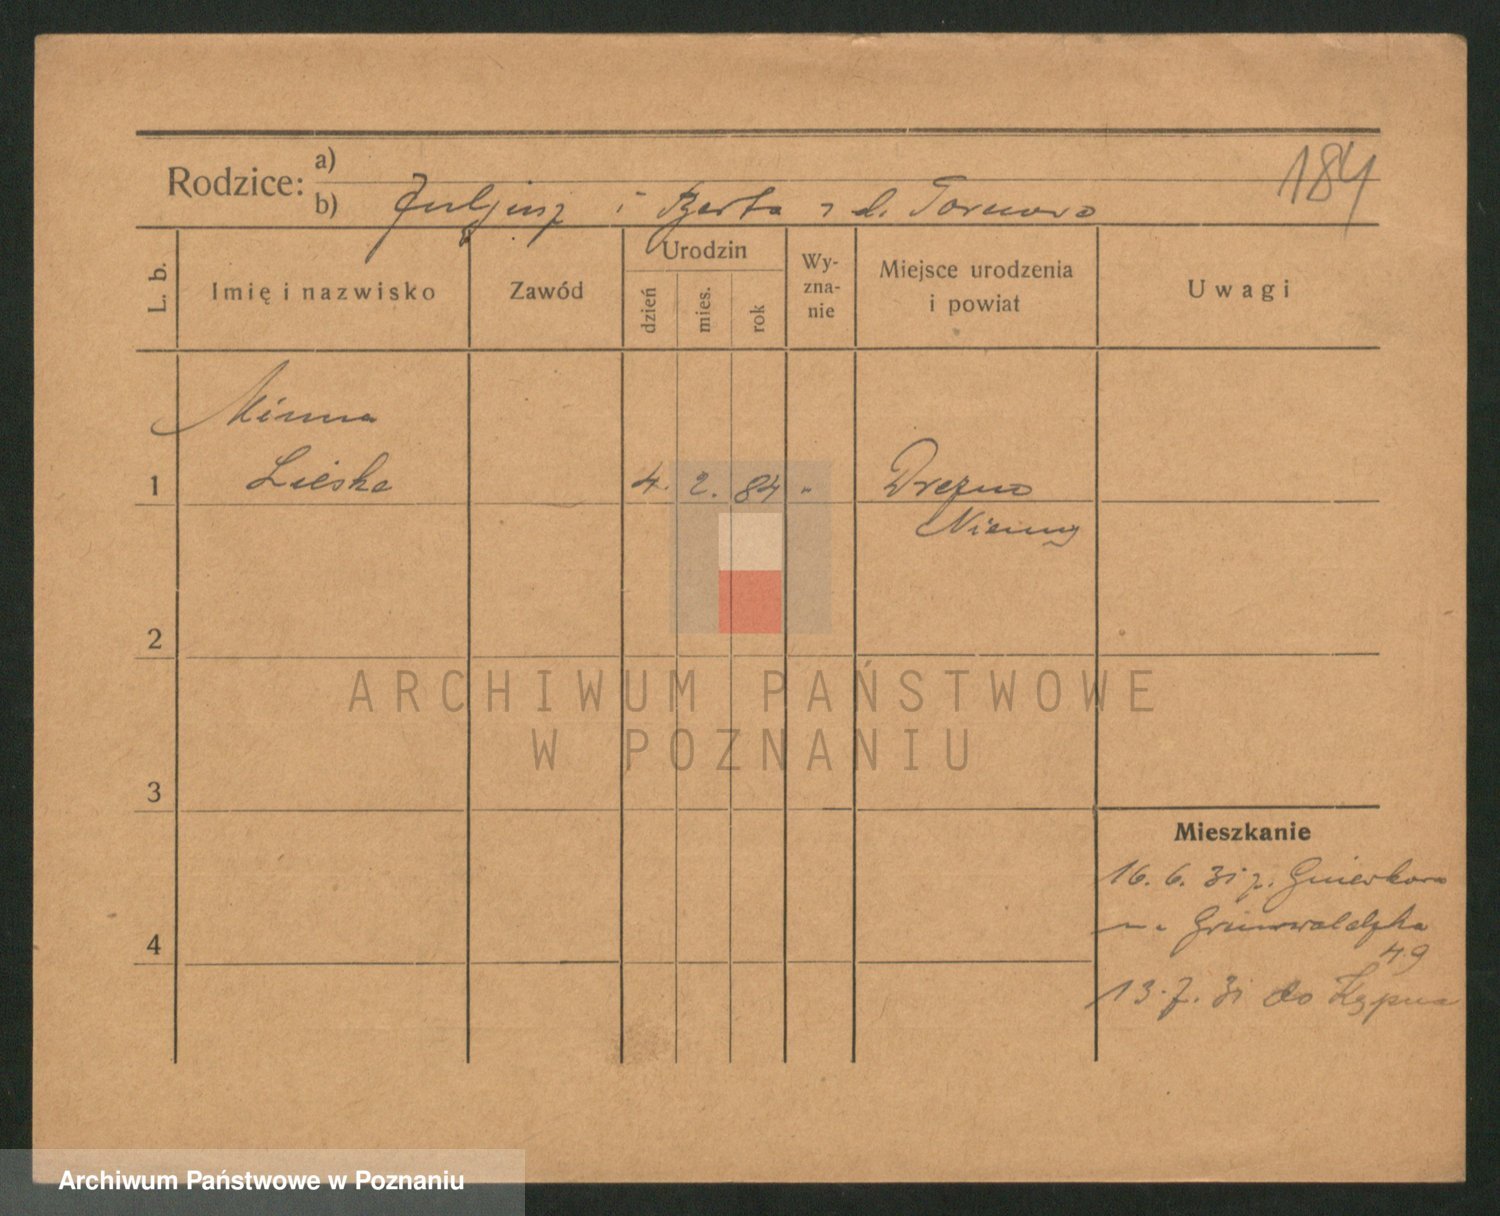 184
Rodzice: a)
b) Juljusz i Berta z d. Tornowo
L. b.
Imię i nazwisko
Zawód
Urodzin
dzień
mies.
rok
Wy-
zna-
nie
Miejsce urodzenia
i powiat
Uwagi
Minna
1 Lieske 4. 2. 84 „ Drezno
Niemcy
2
3
4
Mieszkanie
16. 6. 31 z. Gniewkowo
Grunwaldzka
49
13. 7. 31 do Kępna
ARCHIWUM PAŃSTWOWE
W POZNANIU
Archiwum Państwowe w Poznaniu